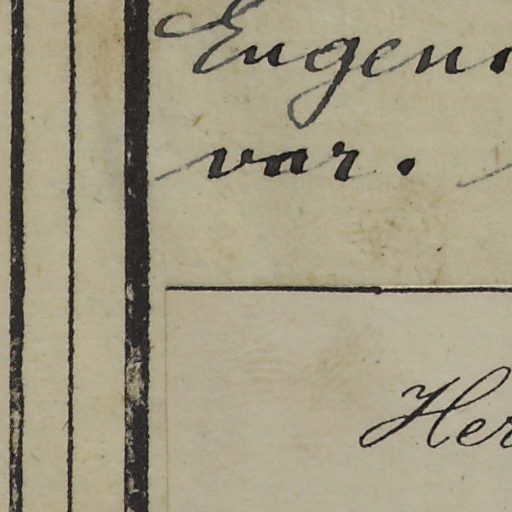 Eugen
var.
Her